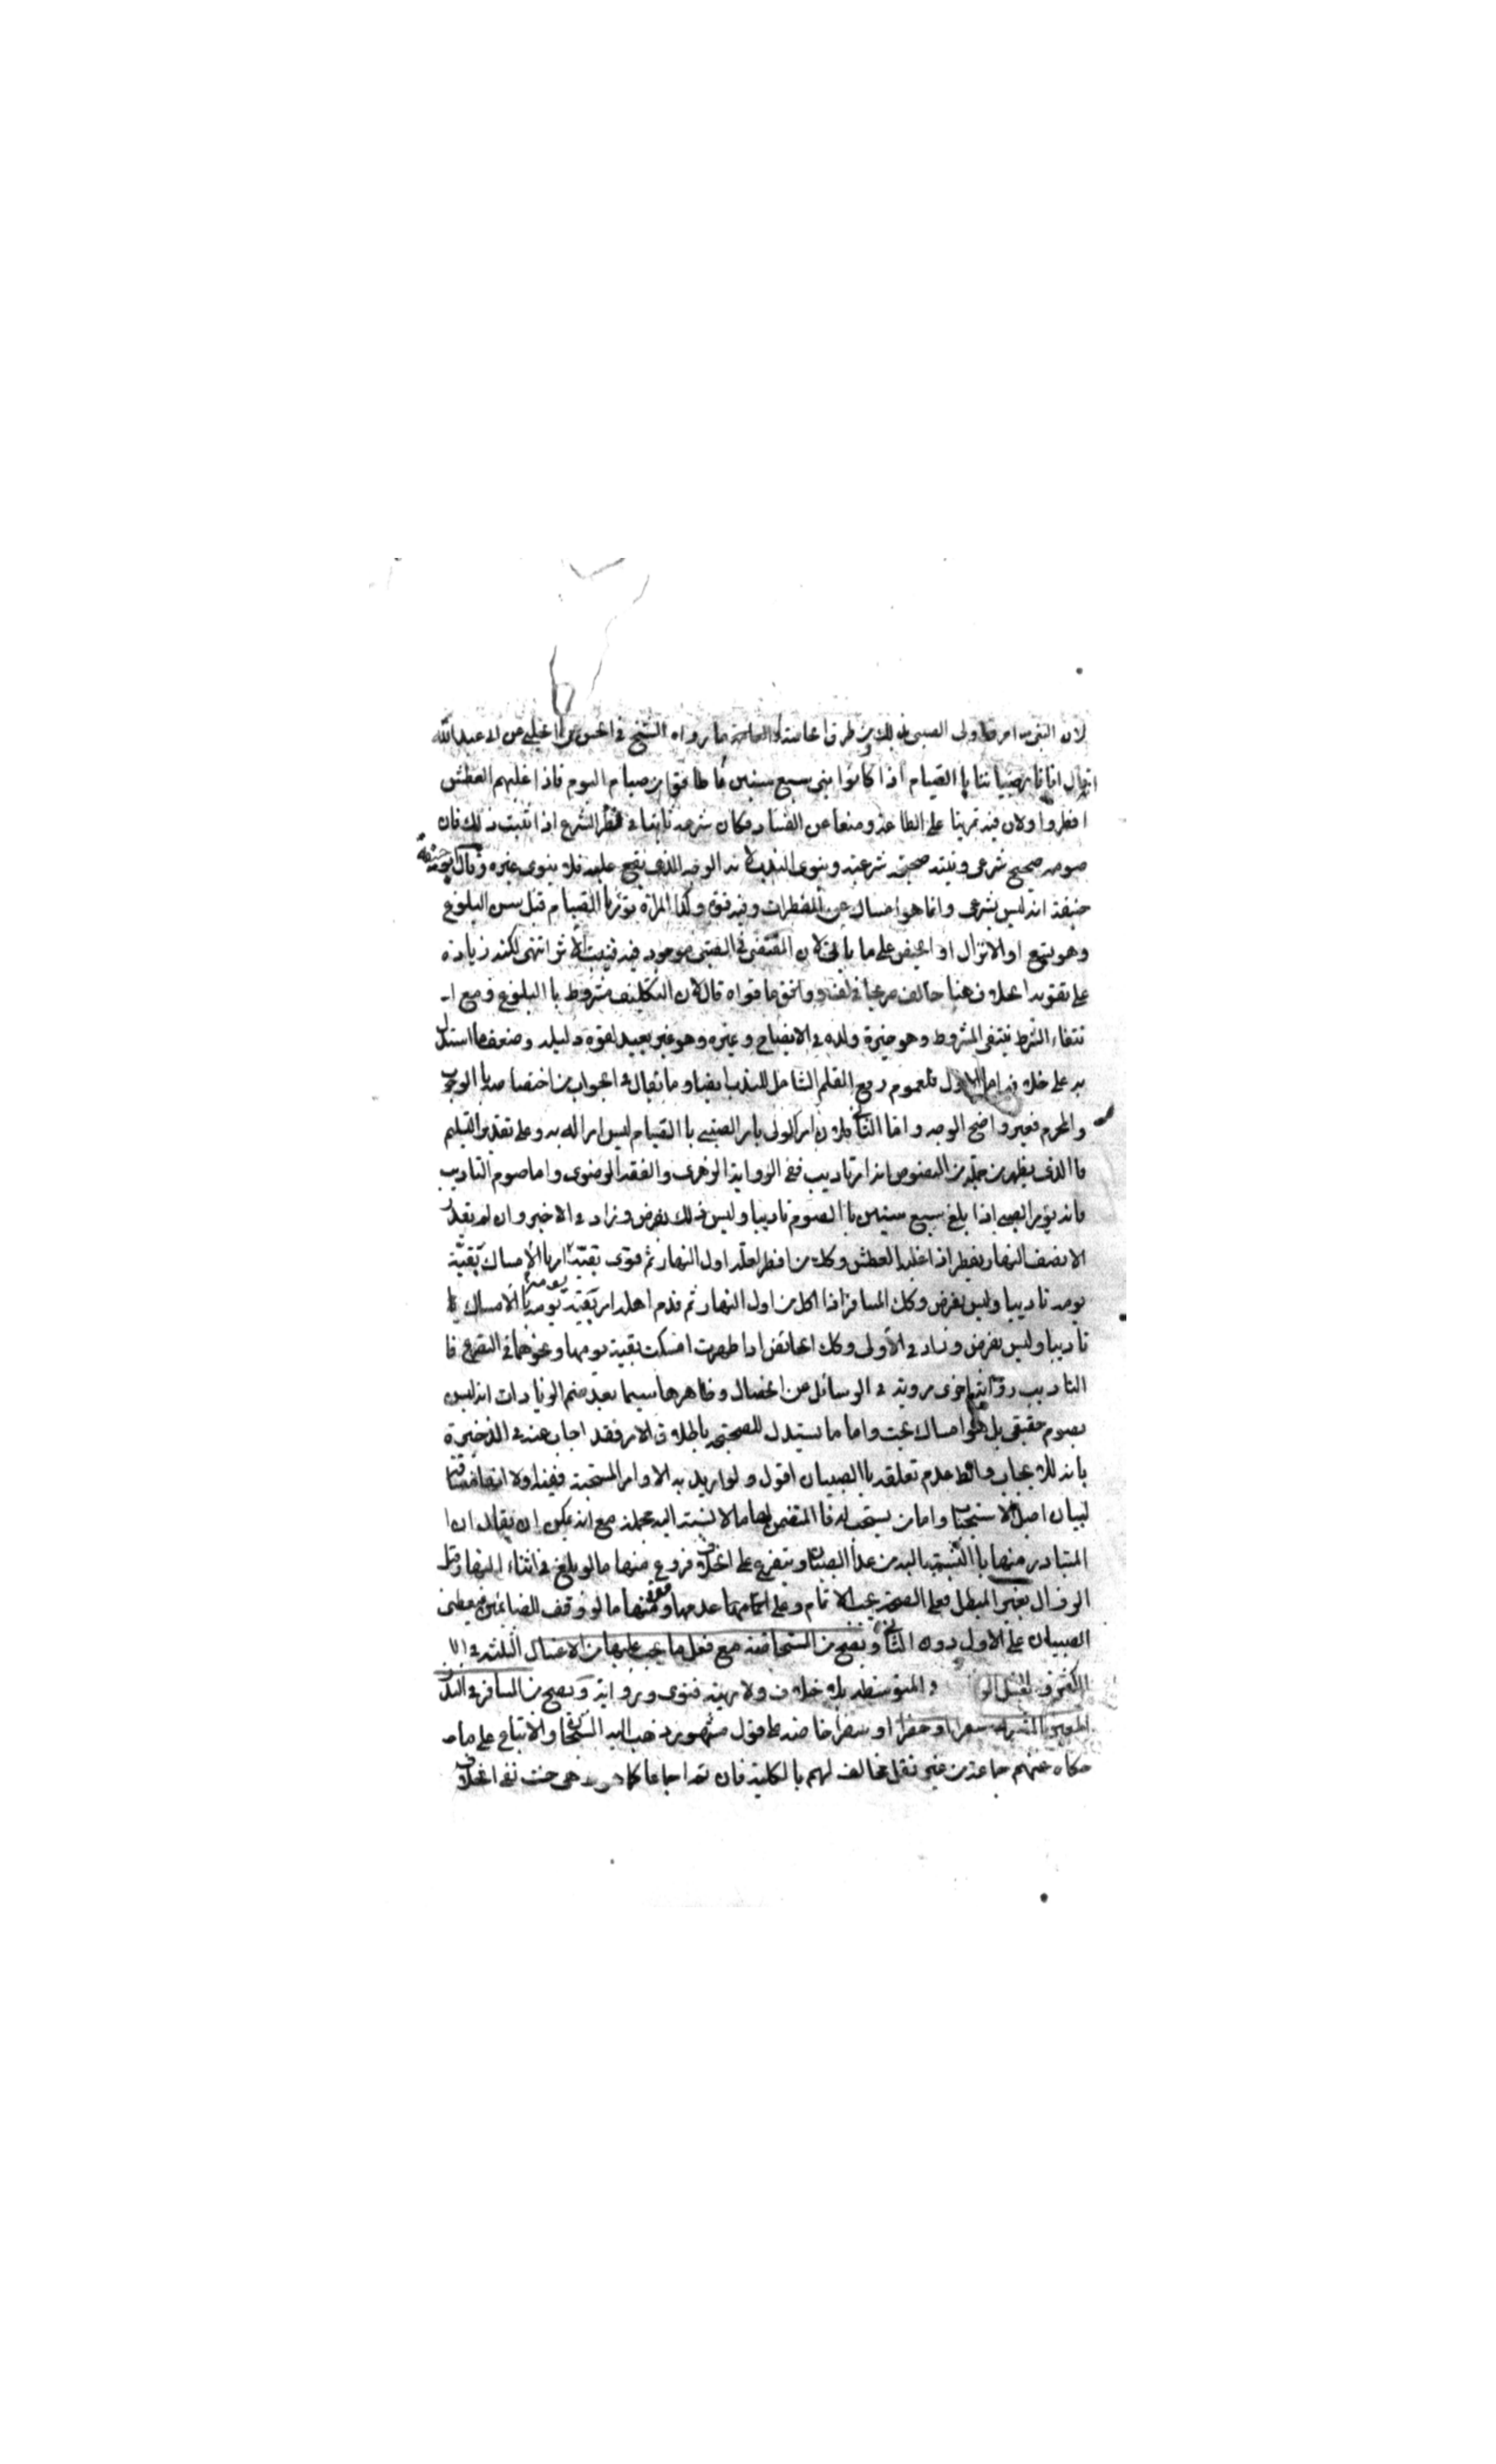 لان النبي امر ولى الصبى بذلك من طرق الخاصة ما رواه الشيخ في الحسن عن الحلبي عن ابي عبد الله
قال انا نامر صبياننا با الصيام اذا كانوا بنى سبع سنين ما طاقوا من صيام اليوم فاذا غلبهم العطش
افطروا ولان فيه تمرينا على الطاعة ومنعا عن الفساد فكان شرعه ثابتا في نظر الشرع اذا ثبت ذلك فان
صومه صحيح شرعي ونيته صحيحة شرعية وينوى الندب لانه الوجه الذى يقع عليه فلا ينوى غيره وقال ابو حنيفة
حنيفة انه ليس بشرعى وانما هو امساك عن المفطرات وفيه قوة وكذا المراة تؤمر با الصيام قبل سن البلوغ
وهو تسع او الانزال او الحيض على ما ياتى لان المقتضى في الصبى موجود فيه فثبت الاثر انتهى لكنه زيادة
على تقويه الخلاف هنا خالف صريحا في المختلف وفق ما قواه قال لان التكليف مشروط با البلوغ ومع ا
نتفاء الشرط ينتفى المشروط وهو خيرة ولده في الايضاح وغيره وهو غير بعيد لقوة دليله وضعف ما استدل
به على خلافه اما الاول فلعموم رفع القلم الشامل للندب ايضا وما يقال في الجواب من اختصاصه با الوجوب
والمحرم فغير واضح الوجه واما الثاني فلان امر الولى بامر الصبي با الصيام ليس امرا له به وعلى تقدير التسليم
فا الذى يظهر من جملة من النصوص انه امر تاديب ففى الرواية الزهرى والفقه الرضوى واما صوم التاديب
فانه يؤمر الصبي اذا بلغ سبع سنين با الصوم تاديبا وليس ذلك بفرض وزاد في الاخير وان لم يقدر
الا نصف النهار يفطر اذا غلبه العطش وكذلك من افطر لعلة اول النهار ثم قوى بقية امر با الامساك بقية
يومه تاديبا وليس بفرض وكذلك المسافر اذا اكل من اول النهار ثم قدم اهله امر بقية يومه با الامساك
تاديبا وليس بفرض وزاد في الاولى وكذلك الحائض اذا طهرت امسكت بقية يومها ونحوهما في التصريح با
التاديب رواية اخرى مروية في الوسائل عن الخصال وظاهرها سيما بعد ضم الزيادات انه ليس
بصوم حقيقى بل هو امساك بحت واما ما يستدل للصحة باطلاق الامر فقد اجاب عنه في الذخيرة
بانه للايجاب عدم تعلقه با الصبيان اقول ولو اريد به الاوامر المستحبة ففيه اولا انها
لبيان اصل الاستحباب واما من يستحب له فا المتضمن لها ما لا يستند اليه عمله مع انه يمكن ان يقال ان
المتبادر منها با النسبة اليه من عدا الصبيان ويتفرع على الخلاف فروع منها ما لو بلغ في اثناء النهار قبل
الزوال بغير المبطل فعلى الصحة يجب الاتمام وعلى عدمها عدمه ومنها ما لو وقف للصائمين فيعطى
الصبيان على الاول دون الثاني ويصح من المستحاضة مع فعل ما يجب عليها من الاغسال الثلثة في
والمتوسطة بلا خلاف ولا ريبة فتوى ورواية ويصح من المسافر في النذر
المعين المشترط سفرا وحضرا او سفرا خاصة على قول مشهور ذهب اليه الشيخان والاتباع على ما
حكاه عنهم جماعة من غير نقل مخالف لهم بالكلية فان تم اجماعا كما هو حيث نفى الخلاف